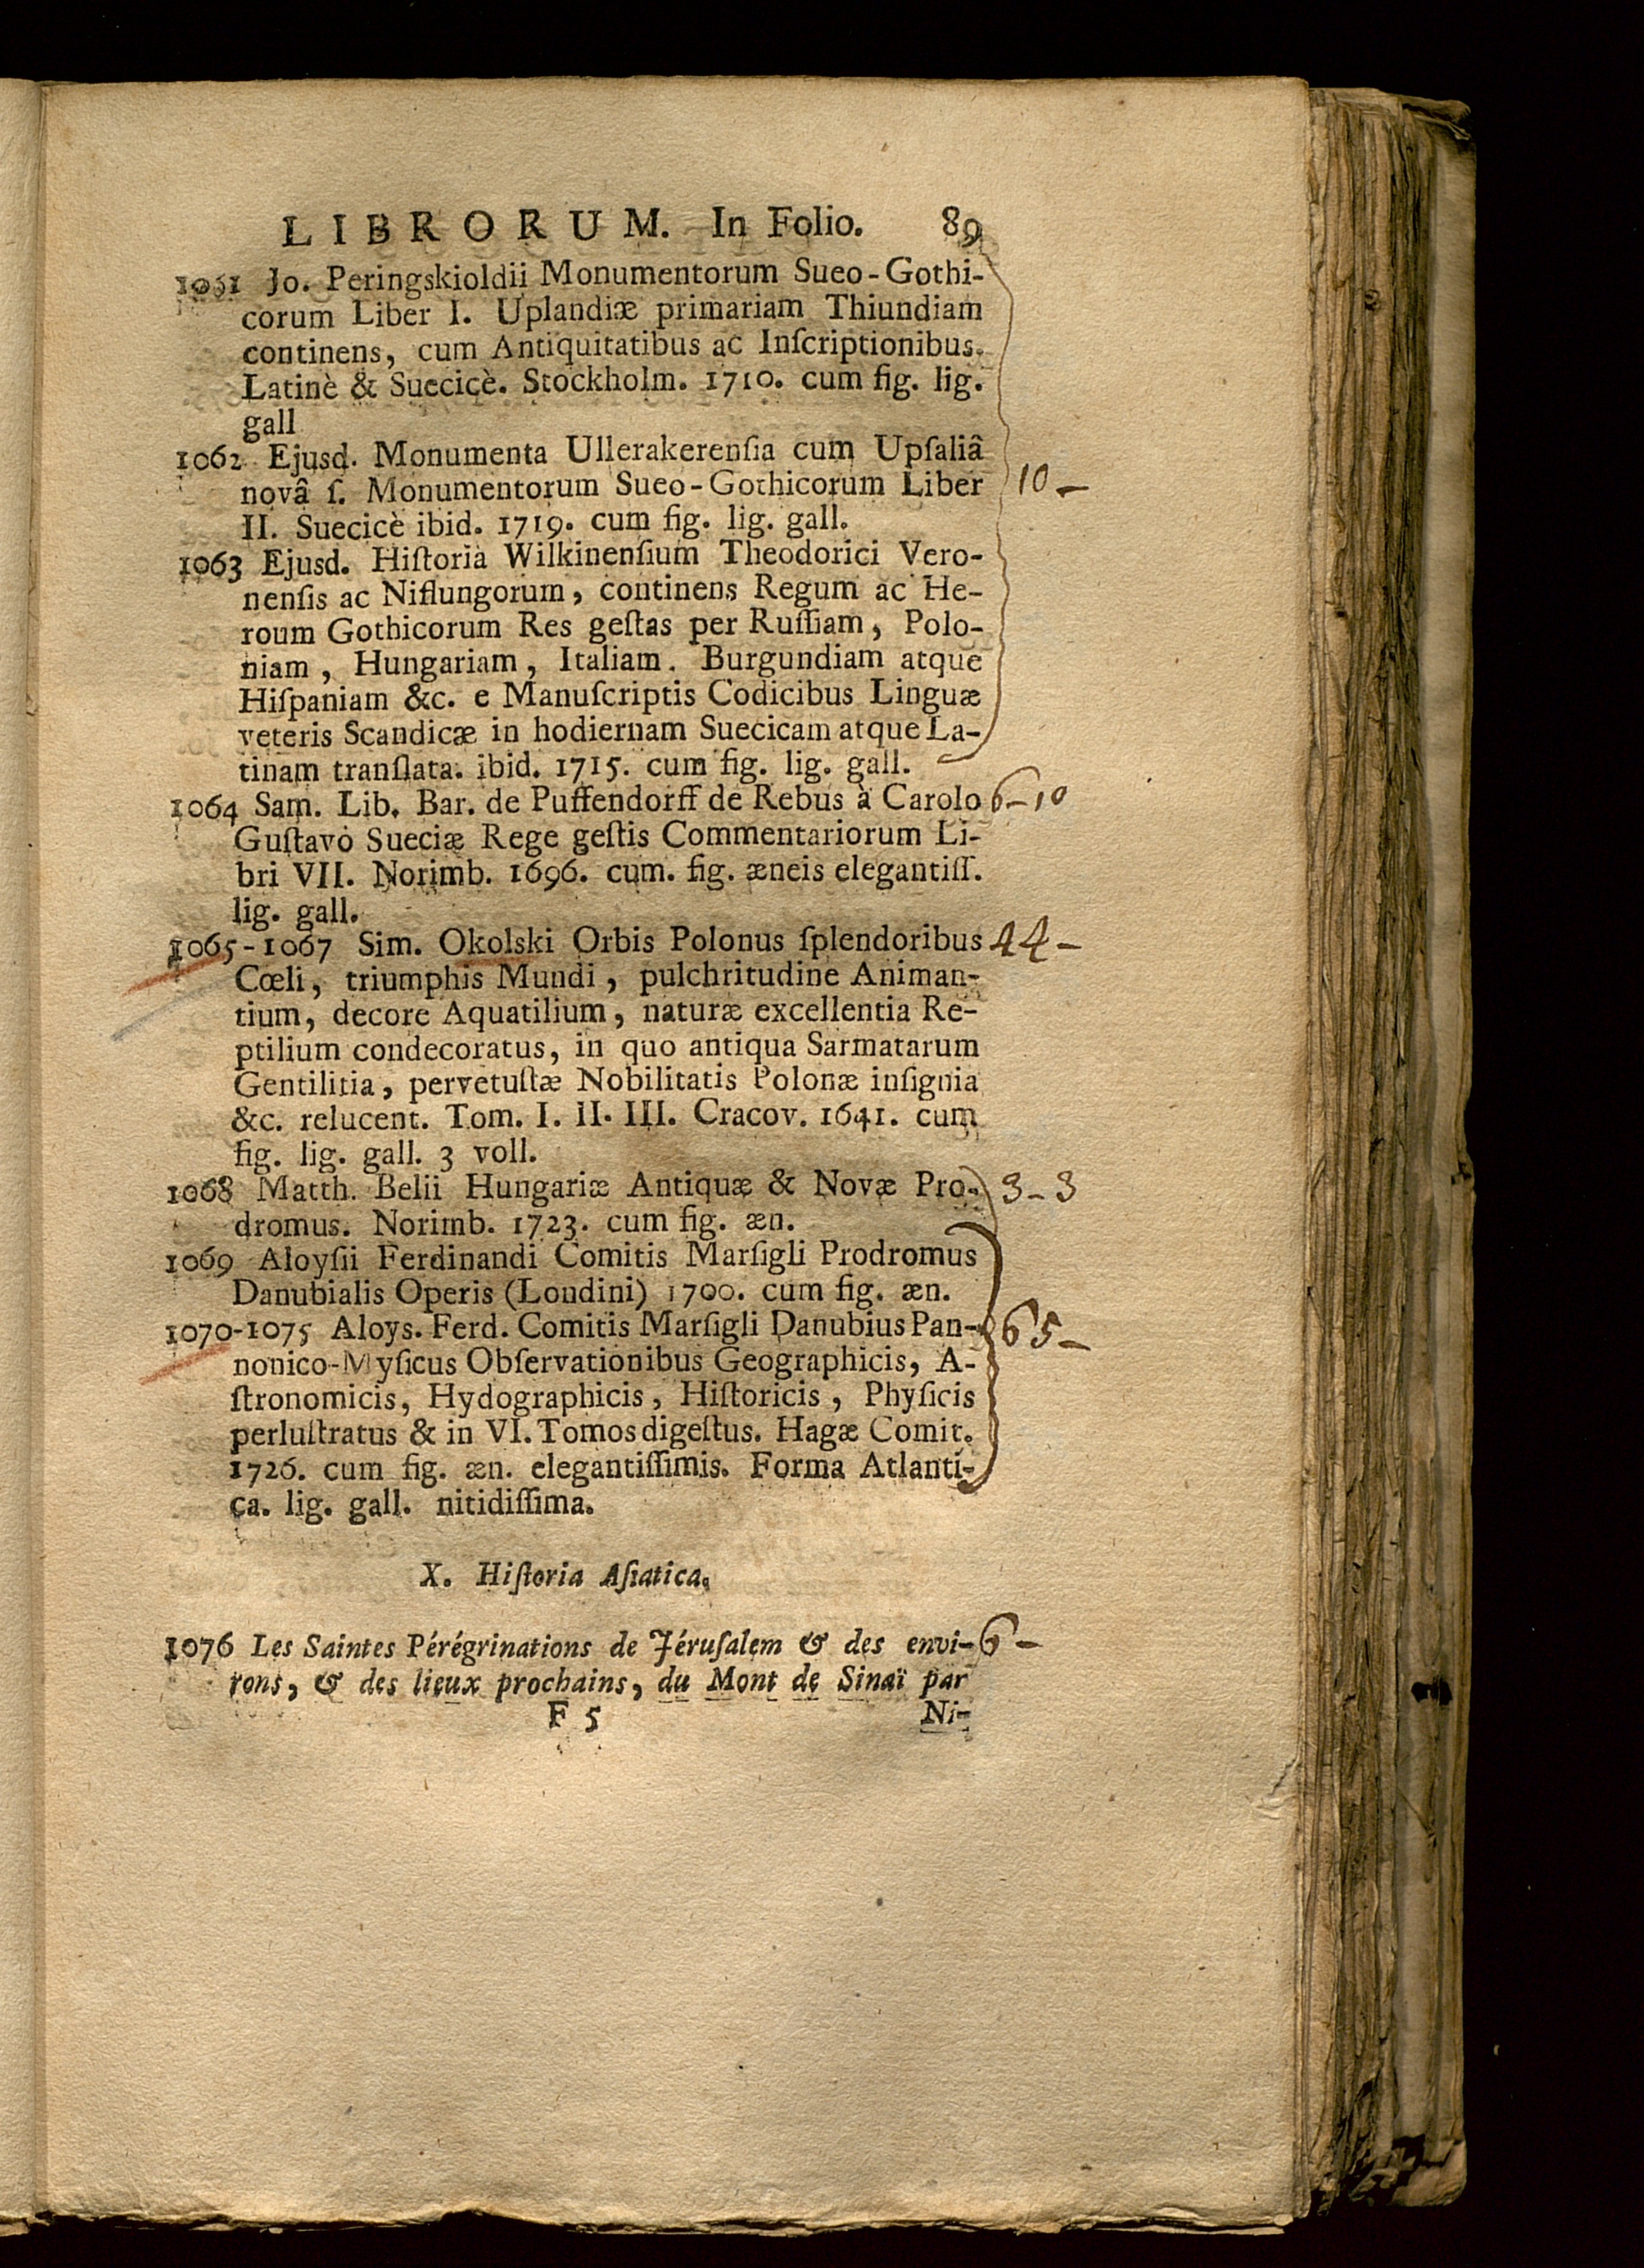 LIBRORUM. In Folio. 89
1061 Jo. Peringskioldii Monumentorum Sueo-Gothi-
corum Liber I. Uplandiæ primariam Thiundiam
continens, cum Antiquitatibus ac Inſcriptionibus.
Latinè & Suecicè. Stockholm. 1710. cum fig. lig.
gall
1062 Ejusd. Monumenta Ullerakerenſia cum Upſaliâ
novâ ſ. Monumentorum Sueo-Gothicorum Liber 10 –
II. Suecicè ibid. 1719. cum fig. lig. gall.
1063 Ejusd. Hiſtoria Wilkinenſium Theodorici Vero-
nenſis ac Niflungorum, continens Regum ac He-
roum Gothicorum Res geſtas per Ruſſiam, Polo-
niam, Hungariam, Italiam. Burgundiam atque
Hiſpaniam &c. e Manuſcriptis Codicibus Linguæ
veteris Scandicæ in hodiernam Suecicam atque La-
tinam tranſlata. ibid. 1715. cum fig. lig. gall.
1064 Sam. Lib. Bar. de Puffendorff de Rebus à Carolo 6–10
Guſtavo Sueciæ Rege geſtis Commentariorum Li-
bri VII. Norimb. 1696. cum. fig. æneis elegantiſſ.
lig. gall.
1065-1067 Sim. Okolski Orbis Polonus ſplendoribus 44 –
Cœli, triumphis Mundi, pulchritudine Animan-
tium, decore Aquatilium, naturæ excellentia Re-
ptilium condecoratus, in quo antiqua Sarmatarum
Gentilitia, pervetuſtæ Nobilitatis Polonæ inſignia
&c. relucent. Tom. I. II. III. Cracov. 1641. cum
fig. lig. gall. 3 voll.
1068 Matth. Belii Hungariæ Antiquæ & Novæ Pro- 3–3
dromus. Norimb. 1723. cum fig. æn.
1069 Aloyſii Ferdinandi Comitis Marſigli Prodromus
Danubialis Operis (Londini) 1700. cum fig. æn.
1070-1075 Aloys. Ferd. Comitis Marſigli Danubius Pan- 65 –
nonico-Myſicus Obſervationibus Geographicis, A-
ſtronomicis, Hydographicis, Hiſtoricis, Phyſicis
perluſtratus & in VI. Tomos digeſtus. Hagæ Comit.
1726. cum fig. æn. elegantiſſimis. Forma Atlanti-
ca. lig. gall. nitidiſſima.
X. Hiſtoria Aſiatica.
1076 Les Saintes Pérégrinations de Jéruſalem & des envi- 6 –
rons, & des lieux prochains, du Mont de Sinaï par
F 5 Ni-